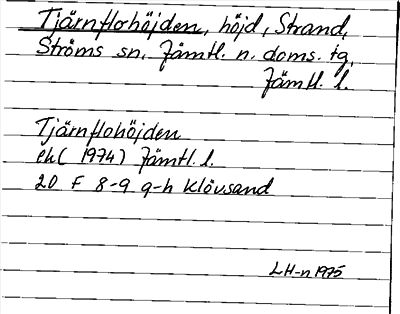 Tjärnflohöjden, höjd, Strand,
Ströms sn, Jämtl. n. doms. tg,
Jämtl. l.
Tjärnflohöjden
ek ( 1974) Jämtl. l.
20 F 8-9 g-h Klövsand
LH-n 1975